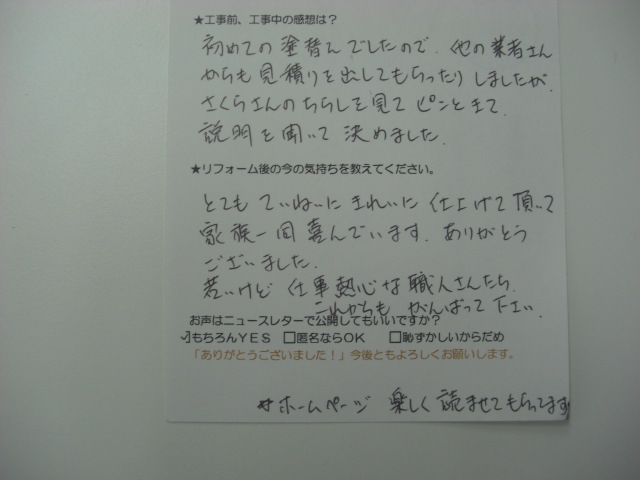 ★工事前、工事中の感想は?
初めての塗替えでしたので、他の業者さん
からも見積りを出してもらったりしましたが、
さくらさんのちらしを見てピンときて、
説明を聞いて決めました。
★リフォーム後の今の気持ちを教えてください。
とてもていねいにきれいに仕上げて頂いて
家族一同喜んでいます。ありがとう
ございました。
若いけど仕事熱心な職人さんたち、
これからもがんばって下さい。
お声はニュースレターで公開してもいいですか?
☑もちろんYES □匿名ならOK □恥ずかしいからだめ
「ありがとうございました!」今後ともよろしくお願いします。
*ホームページ 楽しく読ませてもらってます